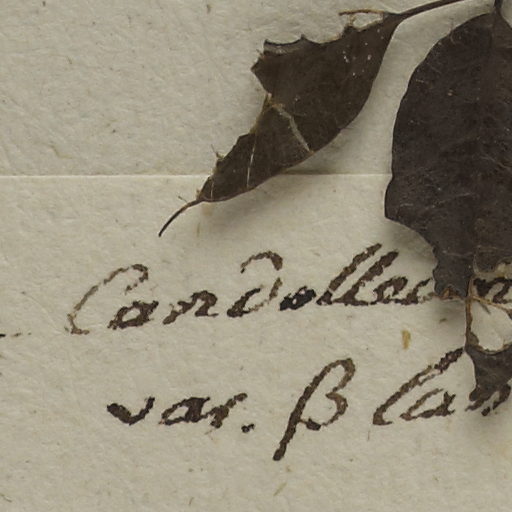 Candollean
var. β lan